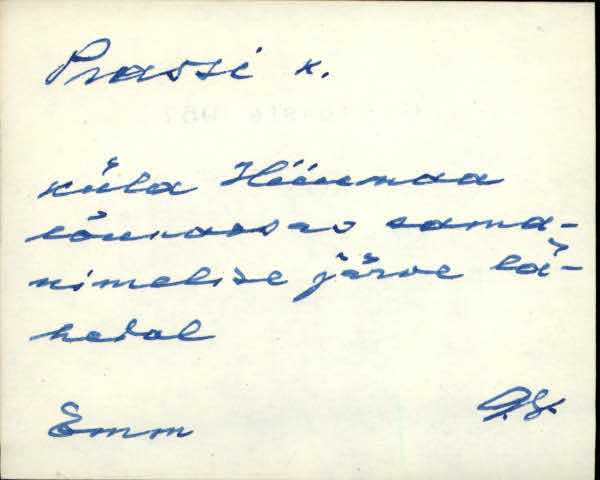 Prassi k.
küla Hiiumaa
lõunaosas sama-
nimelise järve lä-
hedal
Emm